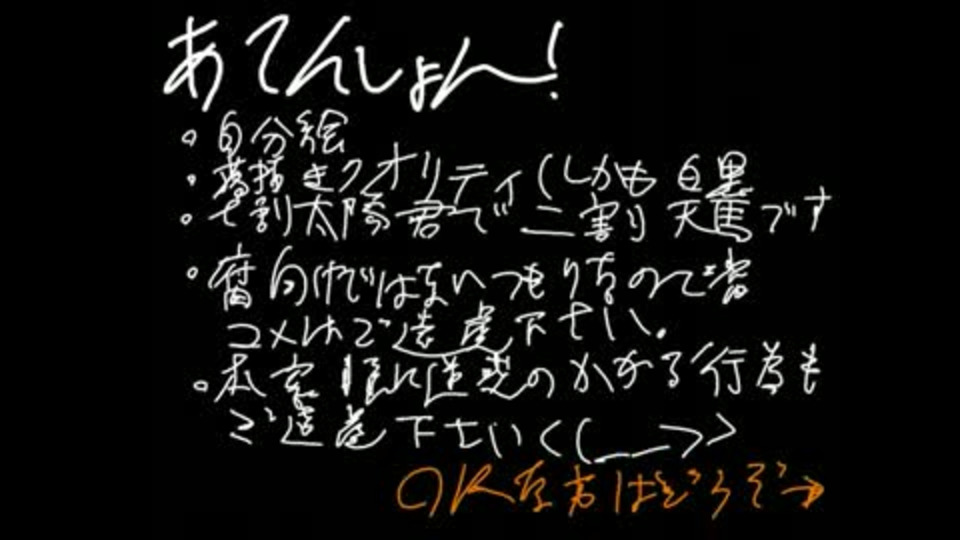 あてんしょん!
・自分絵
・落描きクオリティ(しかも白黒
・七割太陽君で二割天馬です
・腐向けではないつもりなので
コメはご遠慮下さい。
・本家様に迷惑のかかる行為も
ご遠慮下さい<(__)>
OKな方はどうぞ→